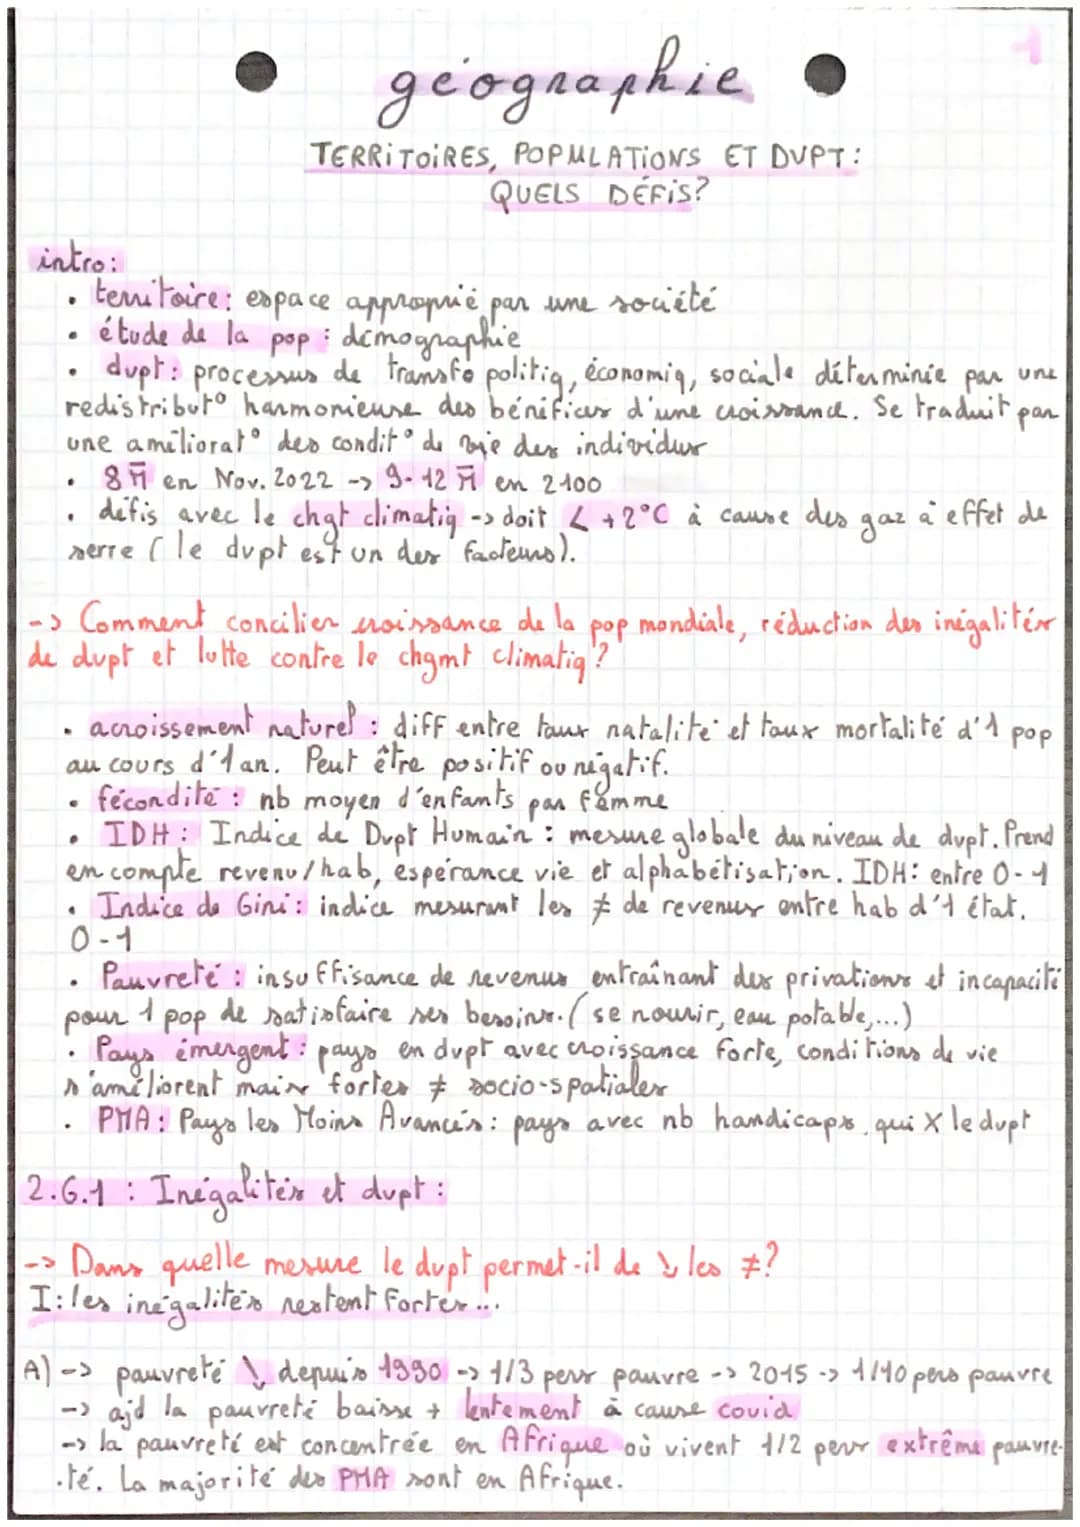 1
géographie
TERRITOIRES, POPULATIONS ET DVPT:
QUELS DÉFIS?
intro:
• territoire: espace approprié par une société
• étude de la pop : démographie
• dvpt: processus de transfo politiq, économiq, sociale déterminée par une
redistribut° harmonieuse des bénéfices d'une croissance. Se traduit par
une améliorat° des condit° de vie des individus
• 8 M̄ en Nov. 2022 -> 9-12 M̄ en 2100
• défis avec le chgt climatiq -> doit < +2°C à cause des gaz à effet de
serre (le dvpt est un des facteurs).
-> Comment concilier croissance de la pop mondiale, réduction des inégalités
de dvpt et lutte contre le chgmt climatiq?
• acroissement naturel : diff entre taux natalité et taux mortalité d'1 pop
au cours d'1 an. Peut être positif ou négatif.
• fécondité : nb moyen d'enfants par femme
• IDH : Indice de Dvpt Humain : mesure globale du niveau de dvpt. Prend
en compte revenu/hab, espérance vie et alphabétisation. IDH: entre 0-1
• Indice de Gini: indice mesurant les ≠ de revenus entre hab d'1 état.
0-1
• Pauvreté : insuffisance de revenus entraînant des privations et incapacité
pour 1 pop de satisfaire ses besoins. (se nourir, eau potable,...)
• Pays émergent : pays en dvpt avec croissance forte, conditions de vie
s'améliorent mais fortes ≠ socio-spatiales
• PMA : Pays les Moins Avancés : pays avec nb handicaps qui X le dvpt
2.G.1 : Inégalités et dvpt :
-> Dans quelle mesure le dvpt permet-il de ↘ les ≠?
I: les inégalités restent fortes...
A) -> pauvreté ↘ depuis 1990 -> 1/3 pers pauvre -> 2015 -> 1/10 pers pauvre
-> ajd la pauvreté baisse + lentement à cause covid
-> la pauvreté est concentrée en Afrique où vivent 1/2 pers extrême pauvre-
-té. La majorité des PMA sont en Afrique.